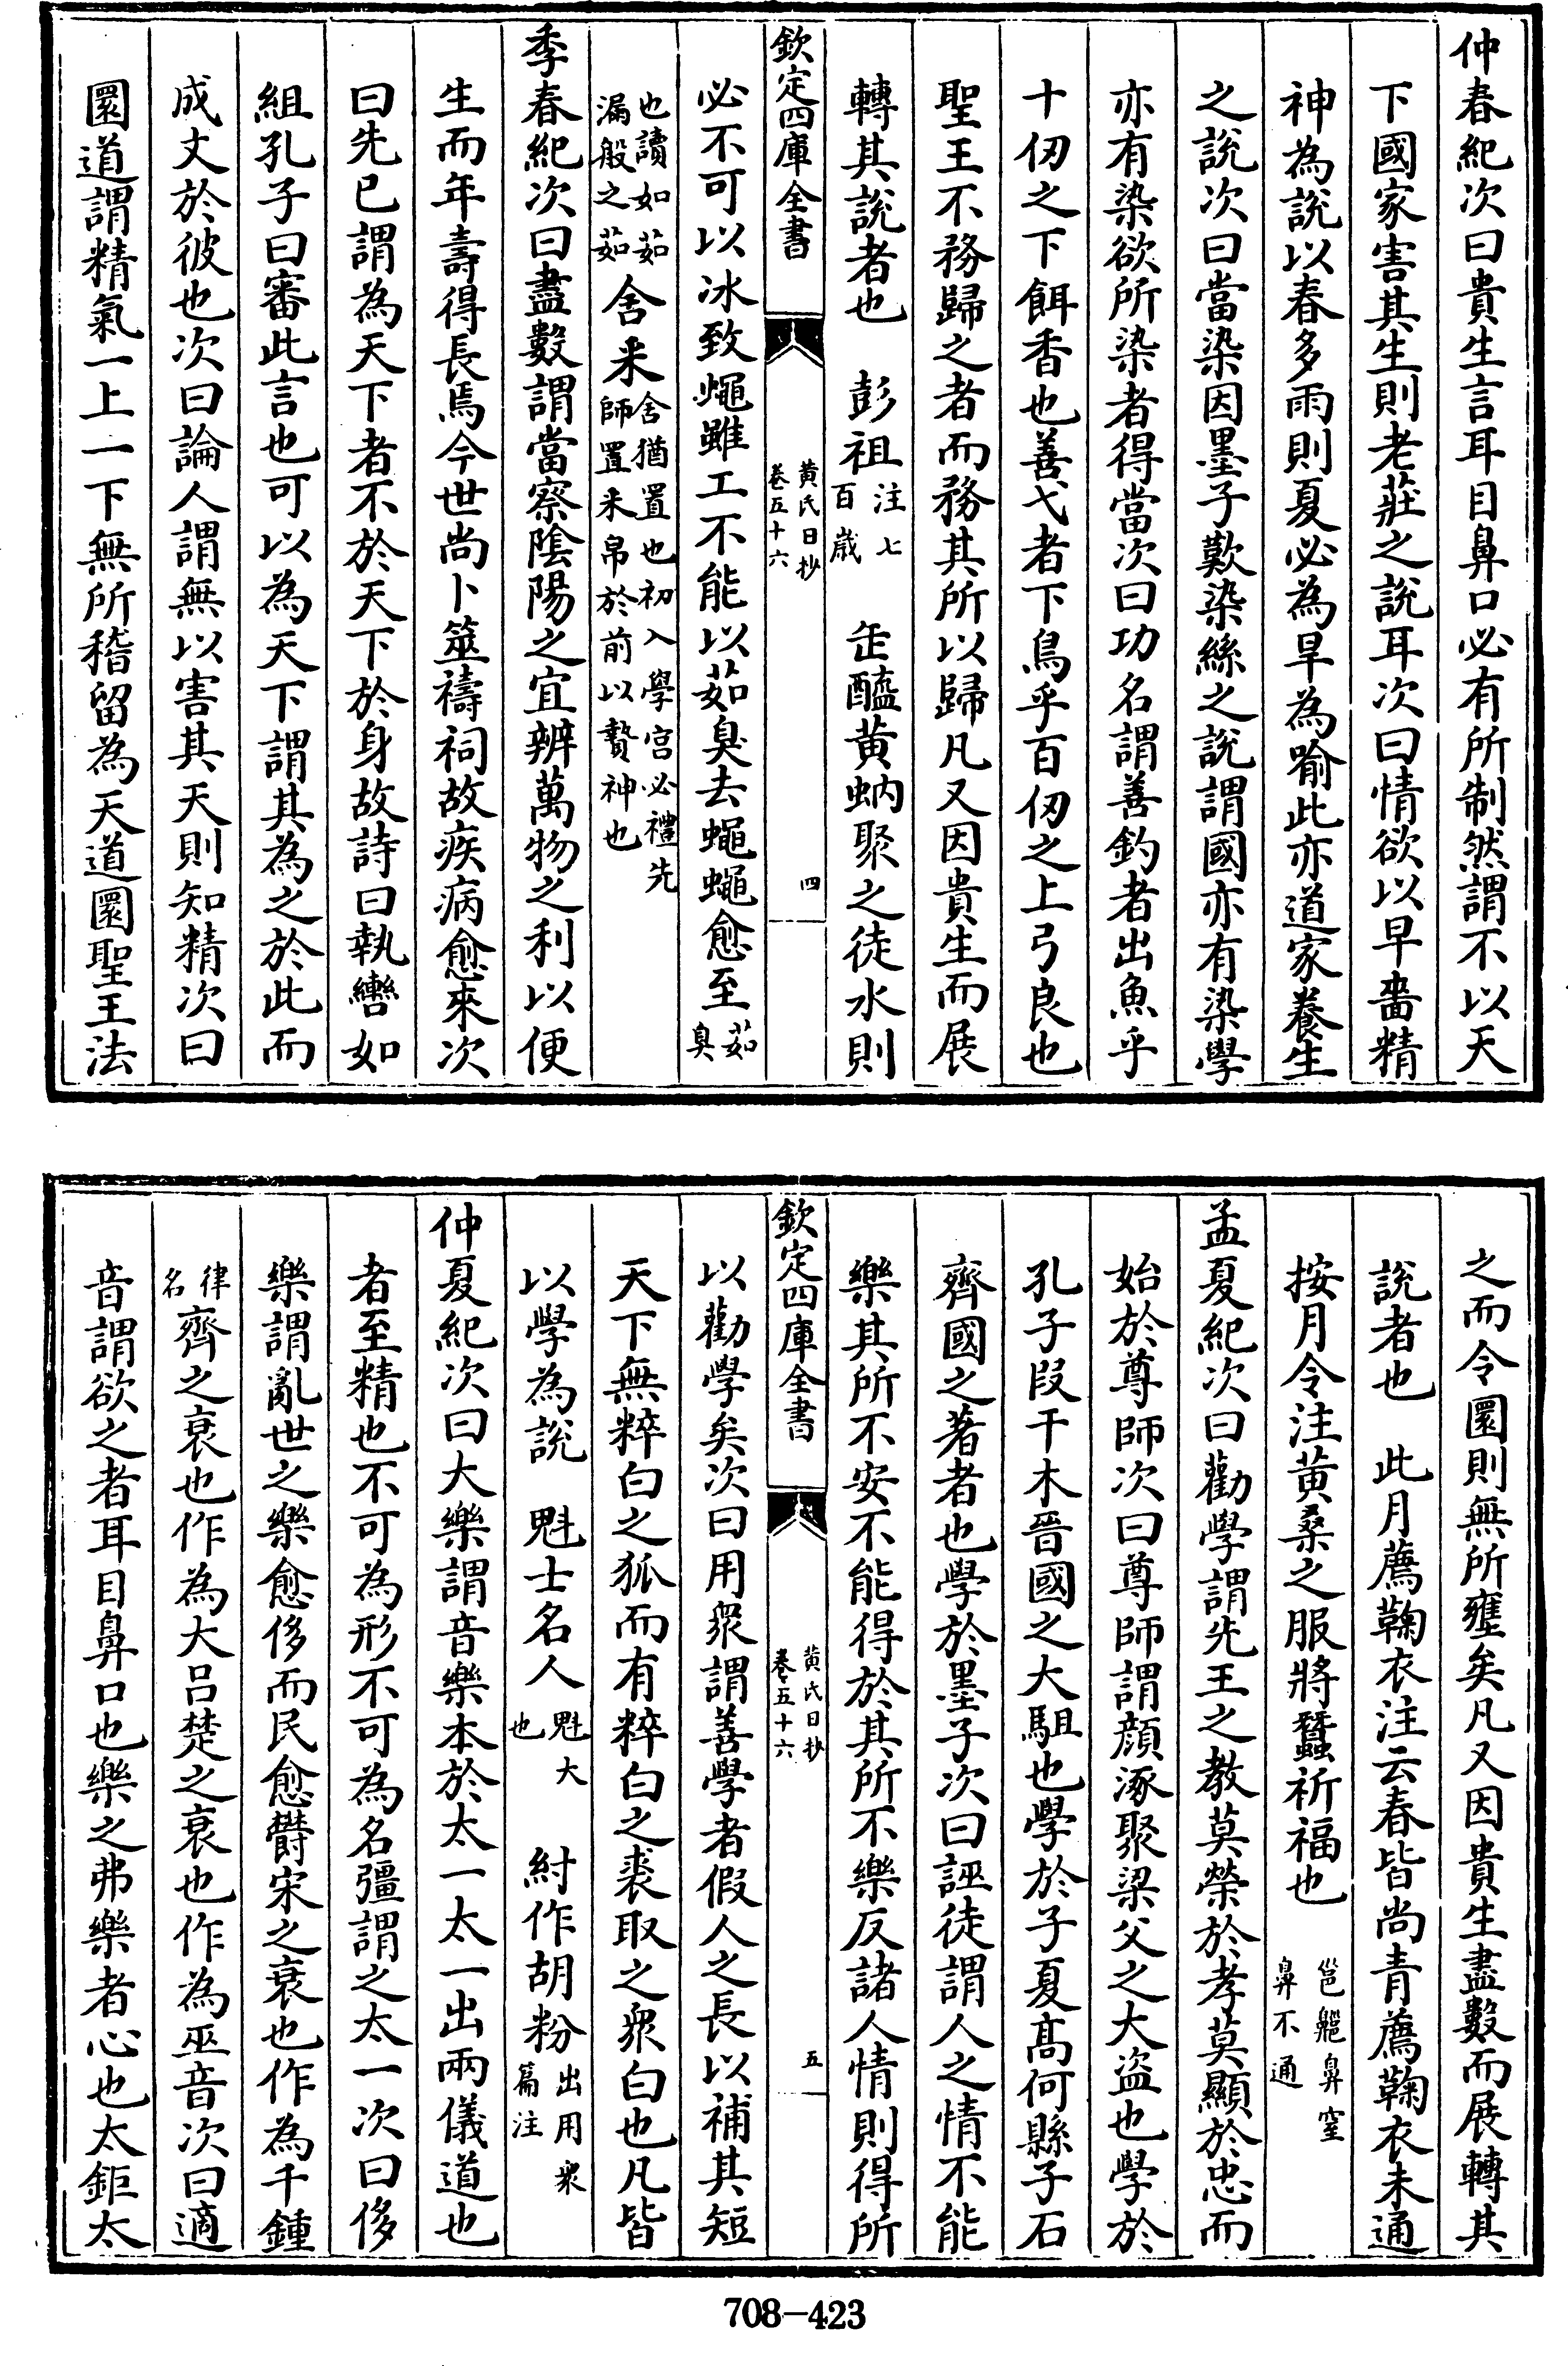 仲春紀次曰貴生言耳目鼻口必有所制然謂不以天
下國家害其生則老莊之說耳次曰情欲以早嗇精
神為說以春多雨則夏必為旱為喻此亦道家養生
之說次曰當染因墨子歎染絲之說謂國亦有染學
亦有染欲所染者得當次曰功名謂善釣者出魚乎
十仞之下餌香也善弋者下鳥乎百仞之上弓良也
聖王不務歸之者而務其所以歸凡又因貴生而展
轉其說者也　彭祖注七百歲　缶醯黄蚋聚之徒水則
欽定四庫全書　黄氏日抄卷五十六　四
必不可以冰致蠅雖工不能以茹臭去蠅蠅愈至茹臭
也讀如茹漏般之茹舍采舍猶置也初入學宫必禮先師置采帛於前以贄神也
季春紀次曰盡數謂當察陰陽之宜辨萬物之利以便
生而年壽得長焉今世尚卜筮禱祠故疾病愈來次
曰先已謂為天下者不於天下於身故詩曰執轡如
組孔子曰審此言也可以為天下謂其為之於此而
成文於彼也次曰論人謂無以害其天則知精次曰
圜道謂精氣一上一下無所稽留為天道圜聖王法
之而令圜則無所壅矣凡又因貴生盡數而展轉其
說者也　此月薦鞠衣注云春皆尚青薦鞠衣未通
按月令注黄桑之服將蠶祈福也　鼻窒鼻不通
孟夏紀次曰勸學謂先王之教莫榮於孝莫顯於忠而
始於尊師次曰尊師謂顔涿聚梁父之大盜也學於
孔子段干木晉國之大駔也學於子夏髙何縣子石
齊國之著者也學於墨子次曰誣徒謂人之情不能
樂其所不安不能得於其所不樂反諸人情則得所
欽定四庫全書　黄氏日抄卷五十六　五
以勸學矣次曰用衆謂善學者假人之長以補其短
天下無粹白之狐而有粹白之裘取之衆白也凡皆
以學為說　魁士名人魁大也　紂作胡粉出用衆篇注
仲夏紀次曰大樂謂音樂本於太一太一出兩儀道也
者至精也不可為形不可為名彊謂之太一次曰侈
樂謂亂世之樂愈侈而民愈鬱宋之衰也作為千鍾
律名齊之衰也作為大呂楚之衰也作為巫音次曰適
音謂欲之者耳目鼻口也樂之弗樂者心也太鉅太
708-423